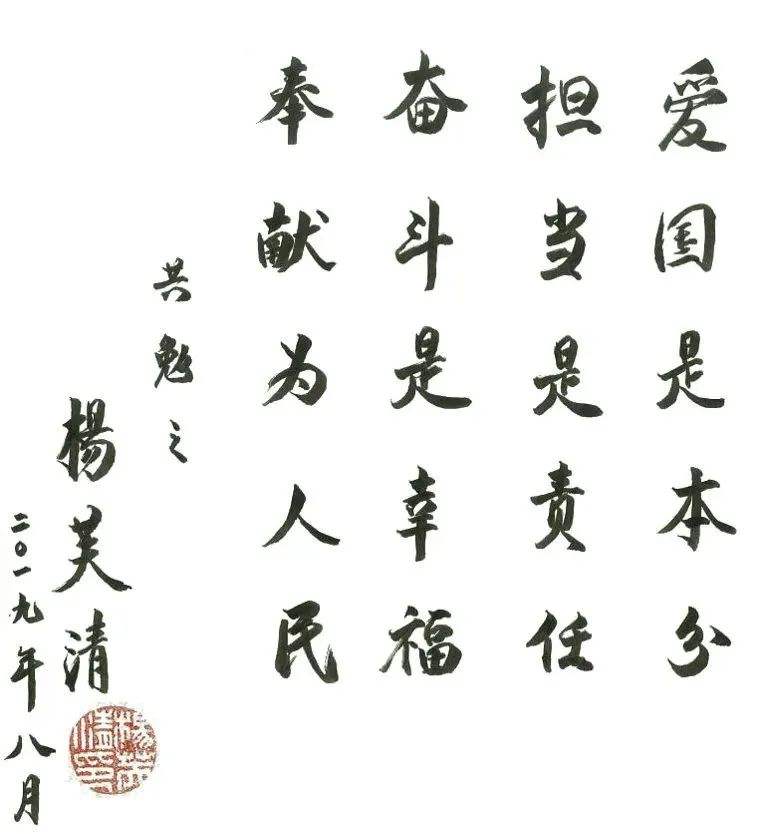 爱国是本分
担当是责任
奋斗是幸福
奉献为人民
共勉之
楊芙清
二〇一九年八月